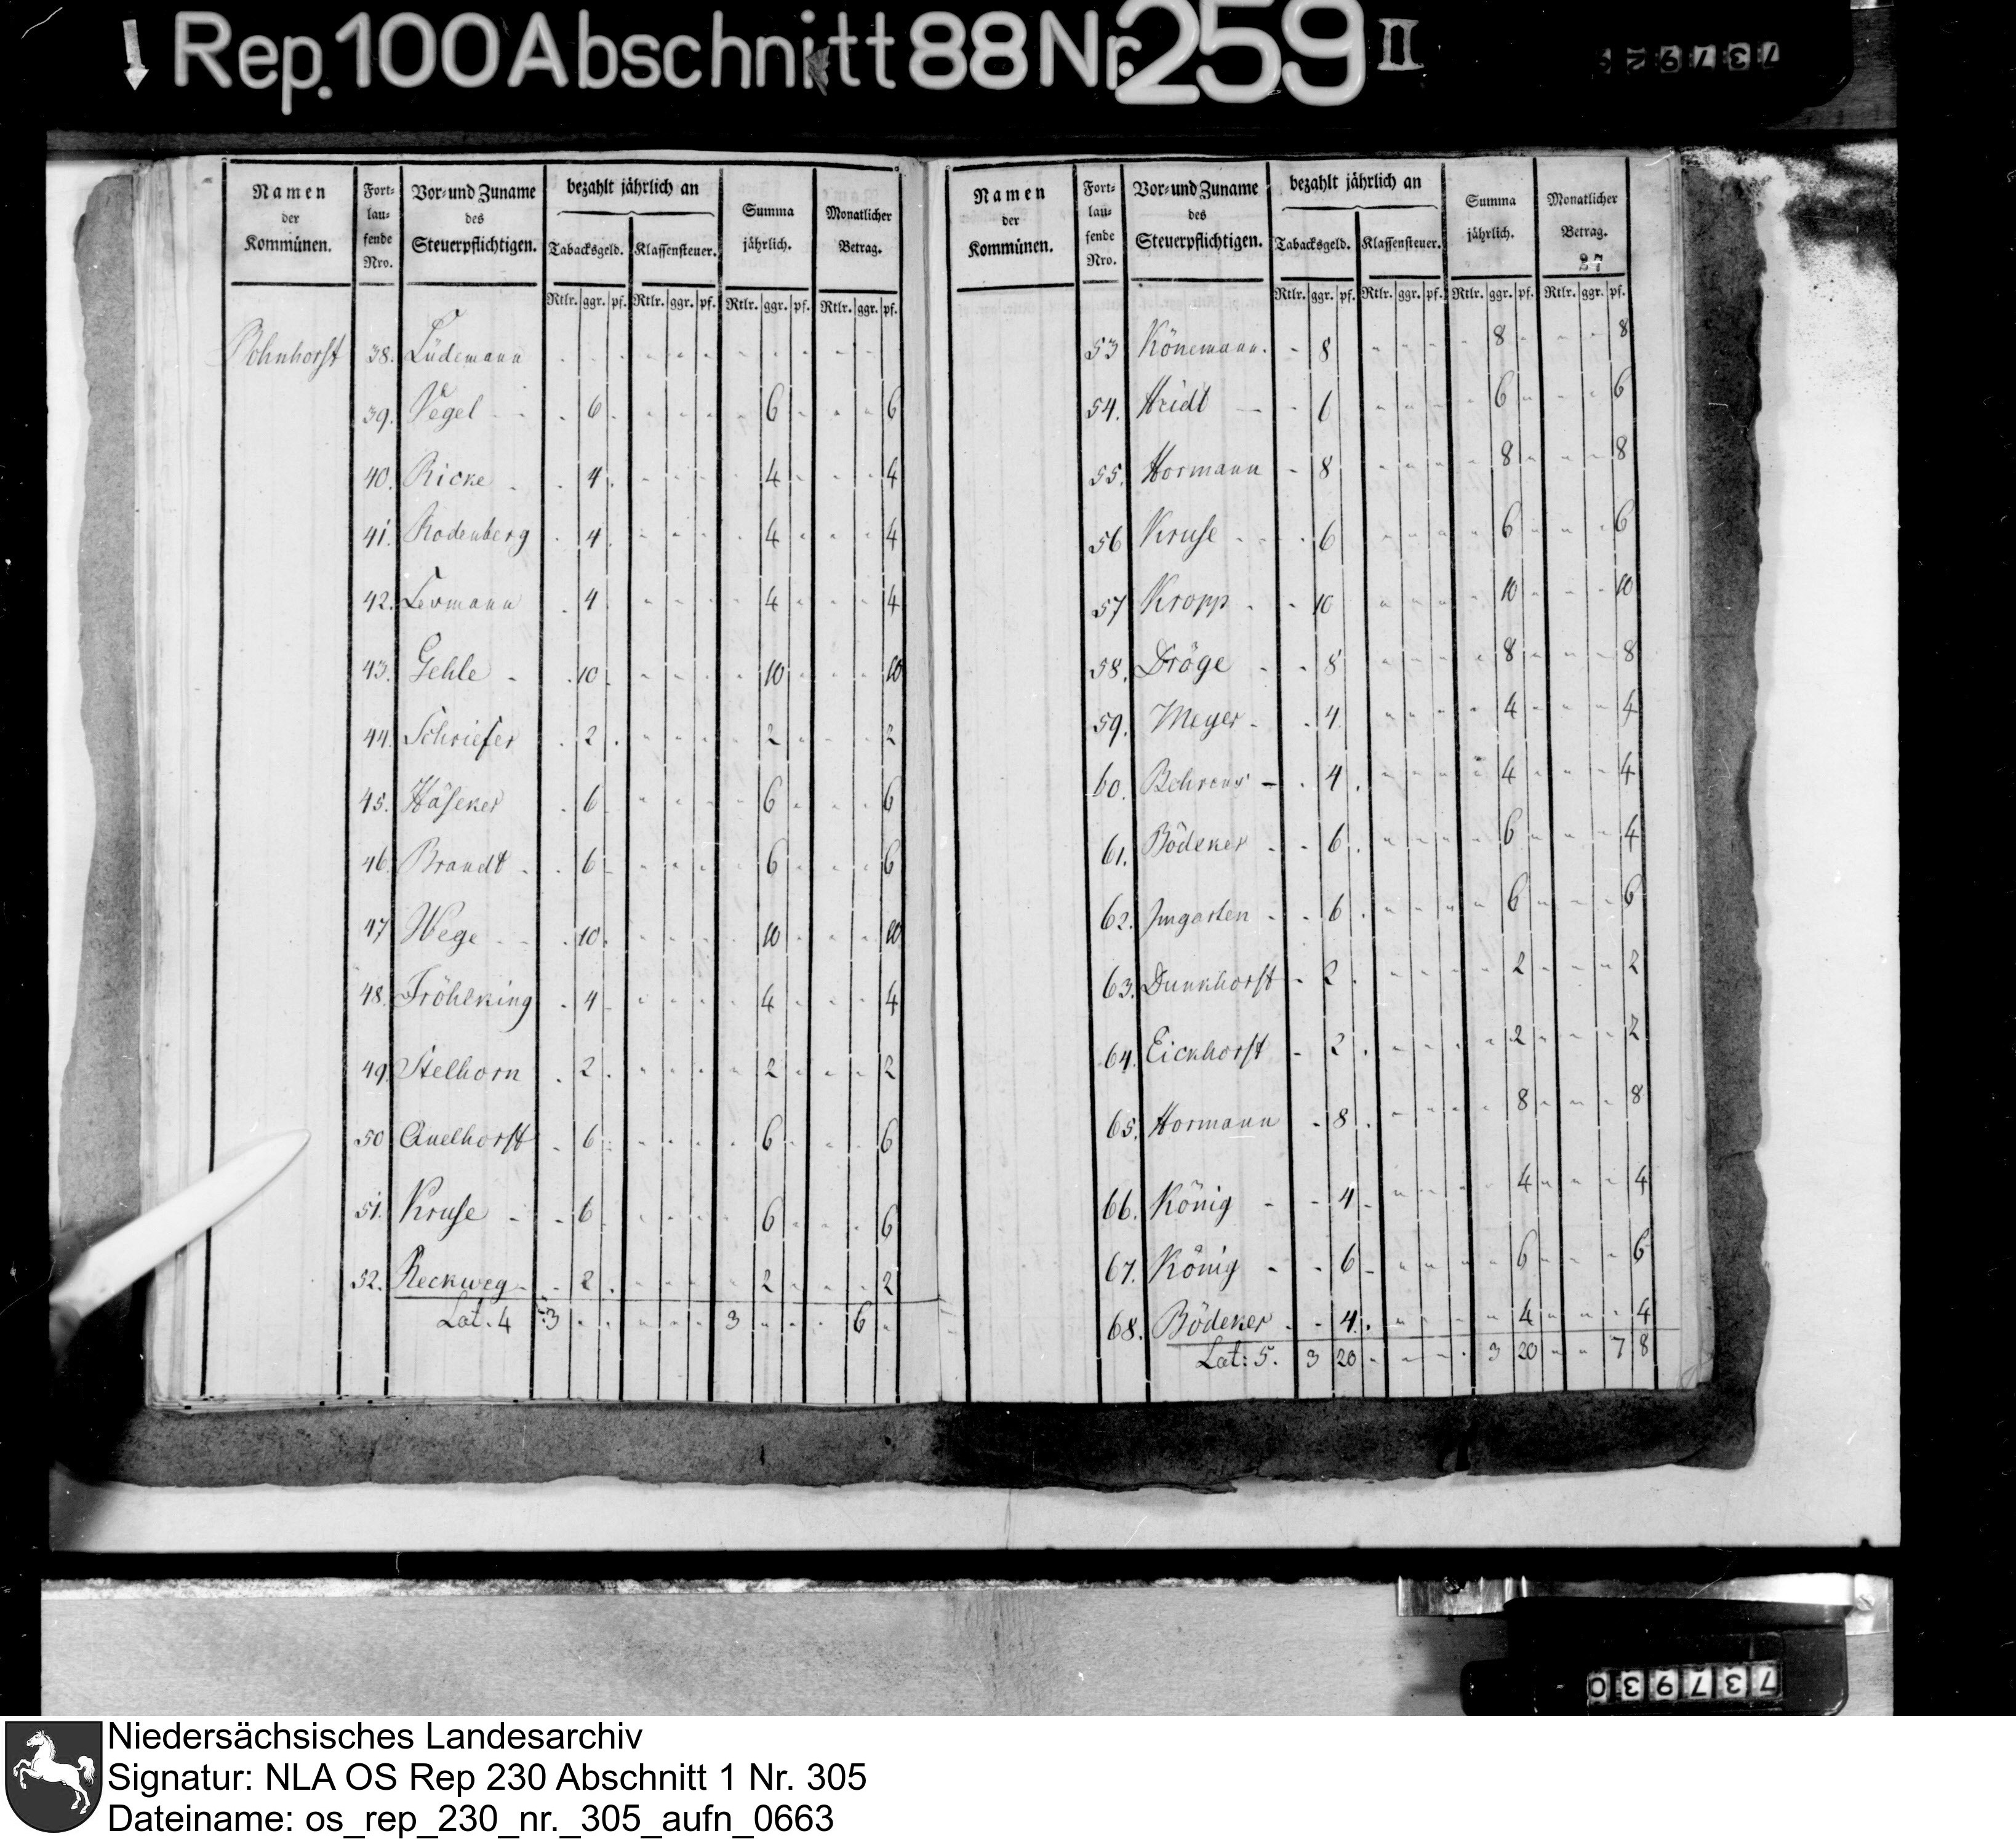 Rep. 100 Abschnitt 88 Nr. 259 II
Namen der Kommünen. Fort- lau- fende Nro. Vor- und Zuname des Steuerpflichtigen. bezahlt jährlich an Tabacksgeld. Klassensteuer. Summa jährlich. Monatlicher Betrag.
Rtlr. ggr. pf. Rtlr. ggr. pf. Rtlr. ggr. pf. Rtlr. ggr. pf.
Bohnhorst 38. Lüdemann - - - - - - - - - - - -
39. Vegel - 6 - - - - - 6 - - - 6
40. Ricke - 4 - - - - - 4 - - - 4
41. Rodenberg - 4 - - - - - 4 - - - 4
42. Levmann - 4 - - - - - 4 - - - 4
43. Gehle - 10 - - - - - 10 - - - 10
44. Schriefer - 2 - - - - - 2 - - - 2
45. Häseker - 6 - - - - - 6 - - - 6
46. Brandt - 6 - - - - - 6 - - - 6
47 Wege - 10 - - - - - 10 - - - 10
48. Fröhlking - 4 - - - - - 4 - - - 4
49. Stelhorn - 2 - - - - - 2 - - - 2
50 Quelhorst - 6 - - - - - 6 - - - 6
51. Kruse - 6 - - - - - 6 - - - 6
52. Reckweg - 2 - - - - - 2 - - - 2
Lat. 4 3 - - - - - 3 - - - 6 -
Namen der Kommünen. Fort- lau- fende Nro. Vor- und Zuname des Steuerpflichtigen. bezahlt jährlich an Tabacksgeld. Klassensteuer. Summa jährlich. Monatlicher Betrag.
27
Rtlr. ggr. pf. Rtlr. ggr. pf. Rtlr. ggr. pf. Rtlr. ggr. pf.
53 Könemann. - 8 - - - - - 8 - - - 8
54. Heidt - 6 - - - - - 6 - - - 6
55. Hormann - 8 - - - - - 8 - - - 8
56 Kruse - 6 - - - - - 6 - - - 6
57 Kropp - 10 - - - - - 10 - - - 10
58. Dröge - 8 - - - - - 8 - - - 8
59. Meyer - 4 - - - - - 4 - - - 4
60. Behrens - 4 - - - - - 4 - - - 4
61. Bödeker - 6 - - - - - 6 - - - 4
62. Imgarten - 6 - - - - - 6 - - - 6
63. Dunkhorst - 2 - - - - - 2 - - - 2
64. Eickhorst - 2 - - - - - 2 - - - 2
65. Hormann - 8 - - - - - 8 - - - 8
66. König - 4 - - - - - 4 - - - 4
67. König - 6 - - - - - 6 - - - 6
68. Bödeker - 4 - - - - - 4 - - - 4
Lat: 5. 3 20 - - - - 3 20 - - 7 8
737930
Niedersächsisches Landesarchiv
Signatur: NLA OS Rep 230 Abschnitt 1 Nr. 305
Dateiname: os_rep_230_nr._305_aufn_0663